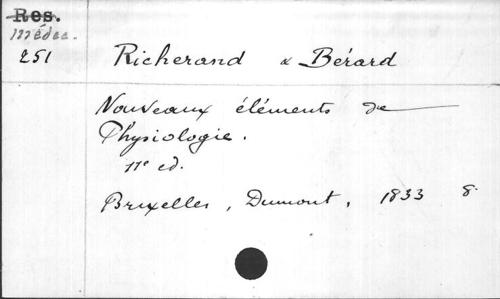 Res.
Médec.
251
Richerand & Bérard
Nouveaux éléments de
Physiologie.
11e ed.
Bruxelles, Dumont, 1833 8.